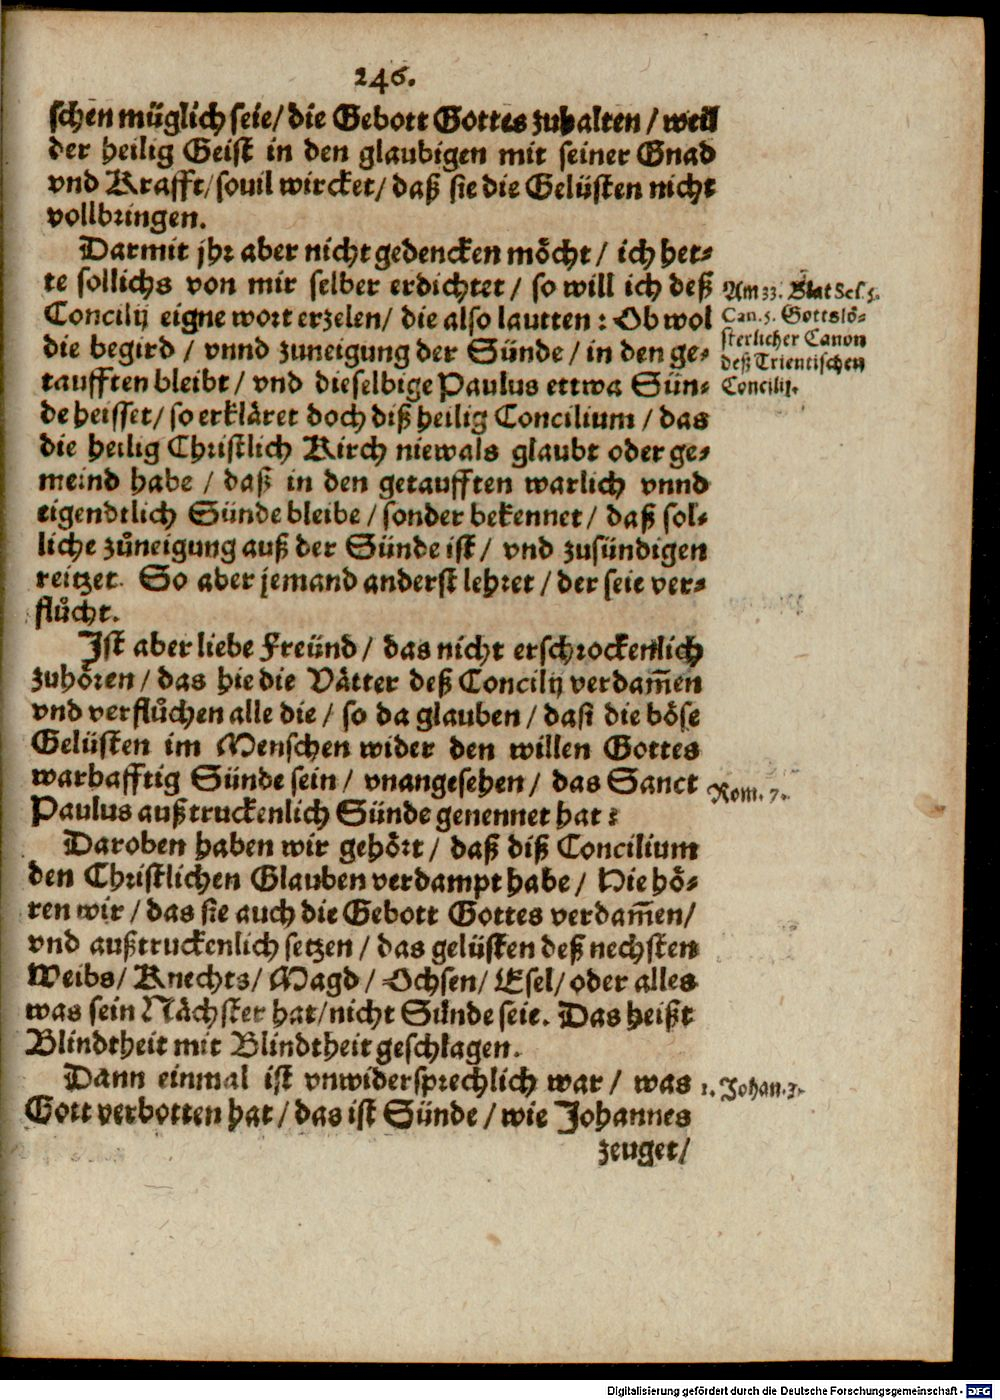 246.
schen müglich seie/ die Gebott Gottes zuhalten / weil
der heilig Geist in den glaubigen mit seiner Gnad
vnd Krafft/ souil wircket/ daß sie die Gelüsten nicht
vollbringen.
Darmit jhr aber nicht gedencken möcht / ich het-
te sollichs von mir selber erdichtet / so will ich deß
Concilij eigne wort erzelen/ die also lautten : Ob wol
die begird / vnnd zuneigung der Sünde / in den ge-
taufften bleibt / vnd dieselbige Paulus ettwa Sün-
de heisset/ so erkläret doch diß heilig Concilium / das
die heilig Christlich Kirch niewals glaubt oder ge-
meind habe / daß in den getaufften warlich vnnd
eigendtlich Sünde bleibe / sonder bekennet / daß sol-
liche zůneigung auß der Sünde ist / vnd zusündigen
reitzet. So aber jemand anderst lehret / der seie ver-
flůcht.
Am 33. Blat Ses. 5.
Can. 5. Gottslö-
sterlicher Canon
deß Trientischen
Concilij.
Ist aber liebe Freünd / das nicht erschrockenlich
zuhören / das hie die Vätter deß Concilij verdam̄en
vnd verflůchen alle die / so da glauben / daß die böse
Gelüsten im Menschen wider den willen Gottes
warhafftig Sünde sein / vnangesehen / das Sanct
Paulus außtruckenlich Sünde genennet hat :
Rom. 7.
Daroben haben wir gehört / daß diß Concilium
den Christlichen Glauben verdampt habe / Hie hö-
ren wir / das sie auch die Gebott Gottes verdam̄en/
vnd außtruckenlich setzen / das gelüsten deß nechsten
Weibs/ Knechts/ Magd / Ochsen/ Esel/ oder alles
was sein Nächster hat/ nicht Sünde seie. Das heißt
Blindtheit mit Blindtheit geschlagen.
Dann einmal ist vnwidersprechlich war / was
Gott verbotten hat / das ist Sünde / wie Johannes
1. Johan. 3.
zeuget/
Digitalisierung gefördert durch die Deutsche Forschungsgemeinschaft - DFG